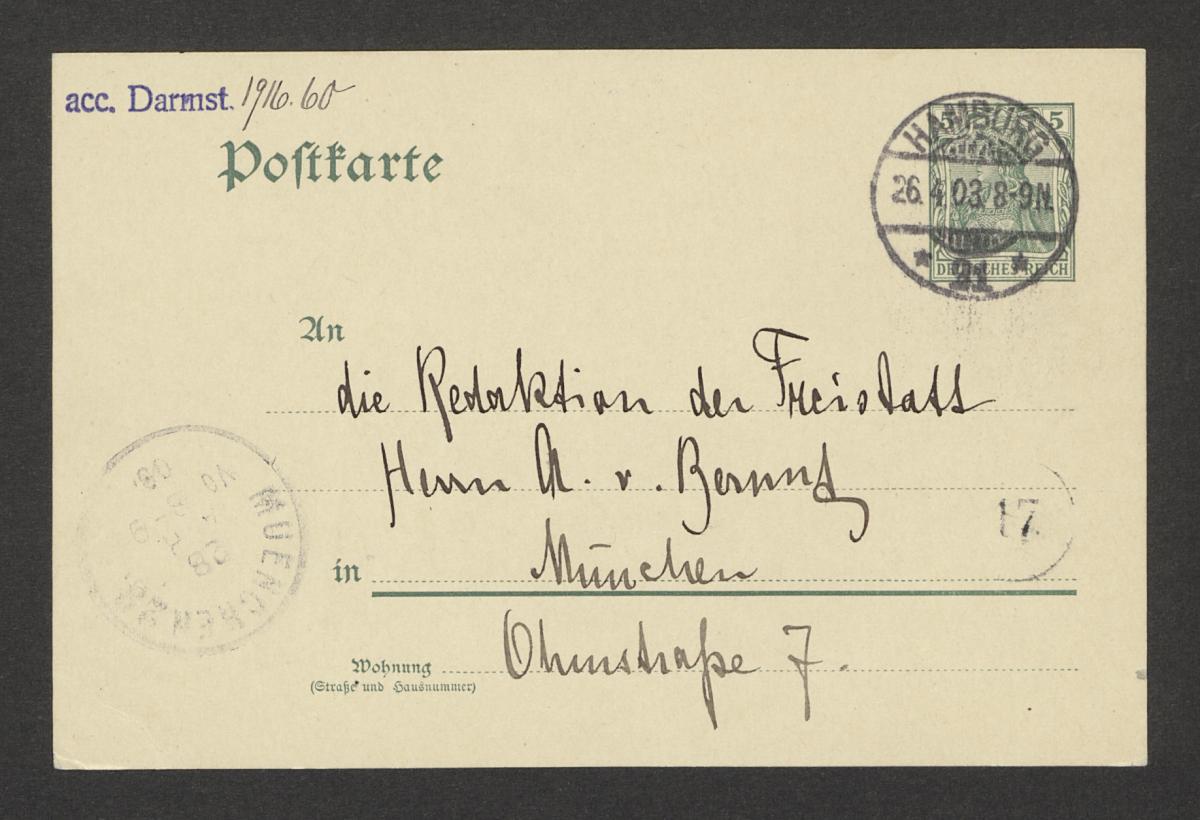 acc. Darmst. 1916.60
Poſtkarte
5 5
HAMBURG
26.4.03. 8-9N.
* 21 *
DEUTSCHES REICH
An
die Redaktion der Freistatt
Herrn A. v. Bernus
17.
in München
MUENCHEN
Wohnung Ohmstraße 7.
(Straße und Hausnummer)